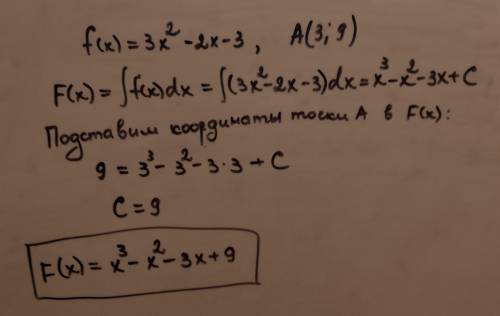 f(x) = 3x² - 2x - 3 , A(3; 9)
F(x) = ∫f(x)dx = ∫(3x² - 2x - 3)dx = x³ - x² - 3x + C
Подставим координаты точки A в F(x):
9 = 3³ - 3² - 3·3 + C
C = 9
F(x) = x³ - x² - 3x + 9